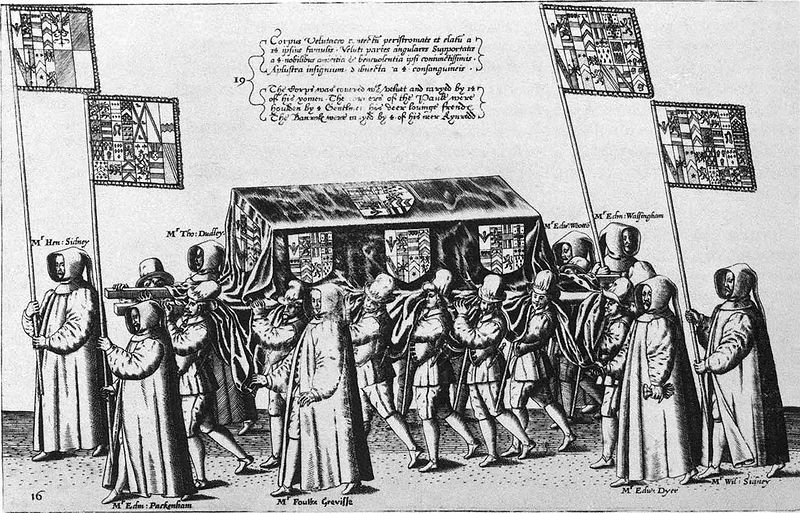 Corpus Velutaceo contectū peristromate et elatū a
14 ipsius famulis. Veluti partes angulares Supportatæ
a 4 nobilibus amicitia & benevolentia ipsi coniunctissimis.
Aplustra insignium a 4 consanguineis.
19
The Corps was covered wth Veluet and caryed by 14
of his yomen. The corners of the Paule were
houlden by 4 Gentlmen his deer lovinge frends
The Baners were caryed by 4 of his neer Kynred
Mr Hen: Sidney
Mr Tho: Dudley
Mr Edw: Wotto
Mr Edm: Walsingham
16
Mr Edm: Packenham
Mr Foulke Grevill
Mr Edw: Dyer
Mr Wil: Sidney